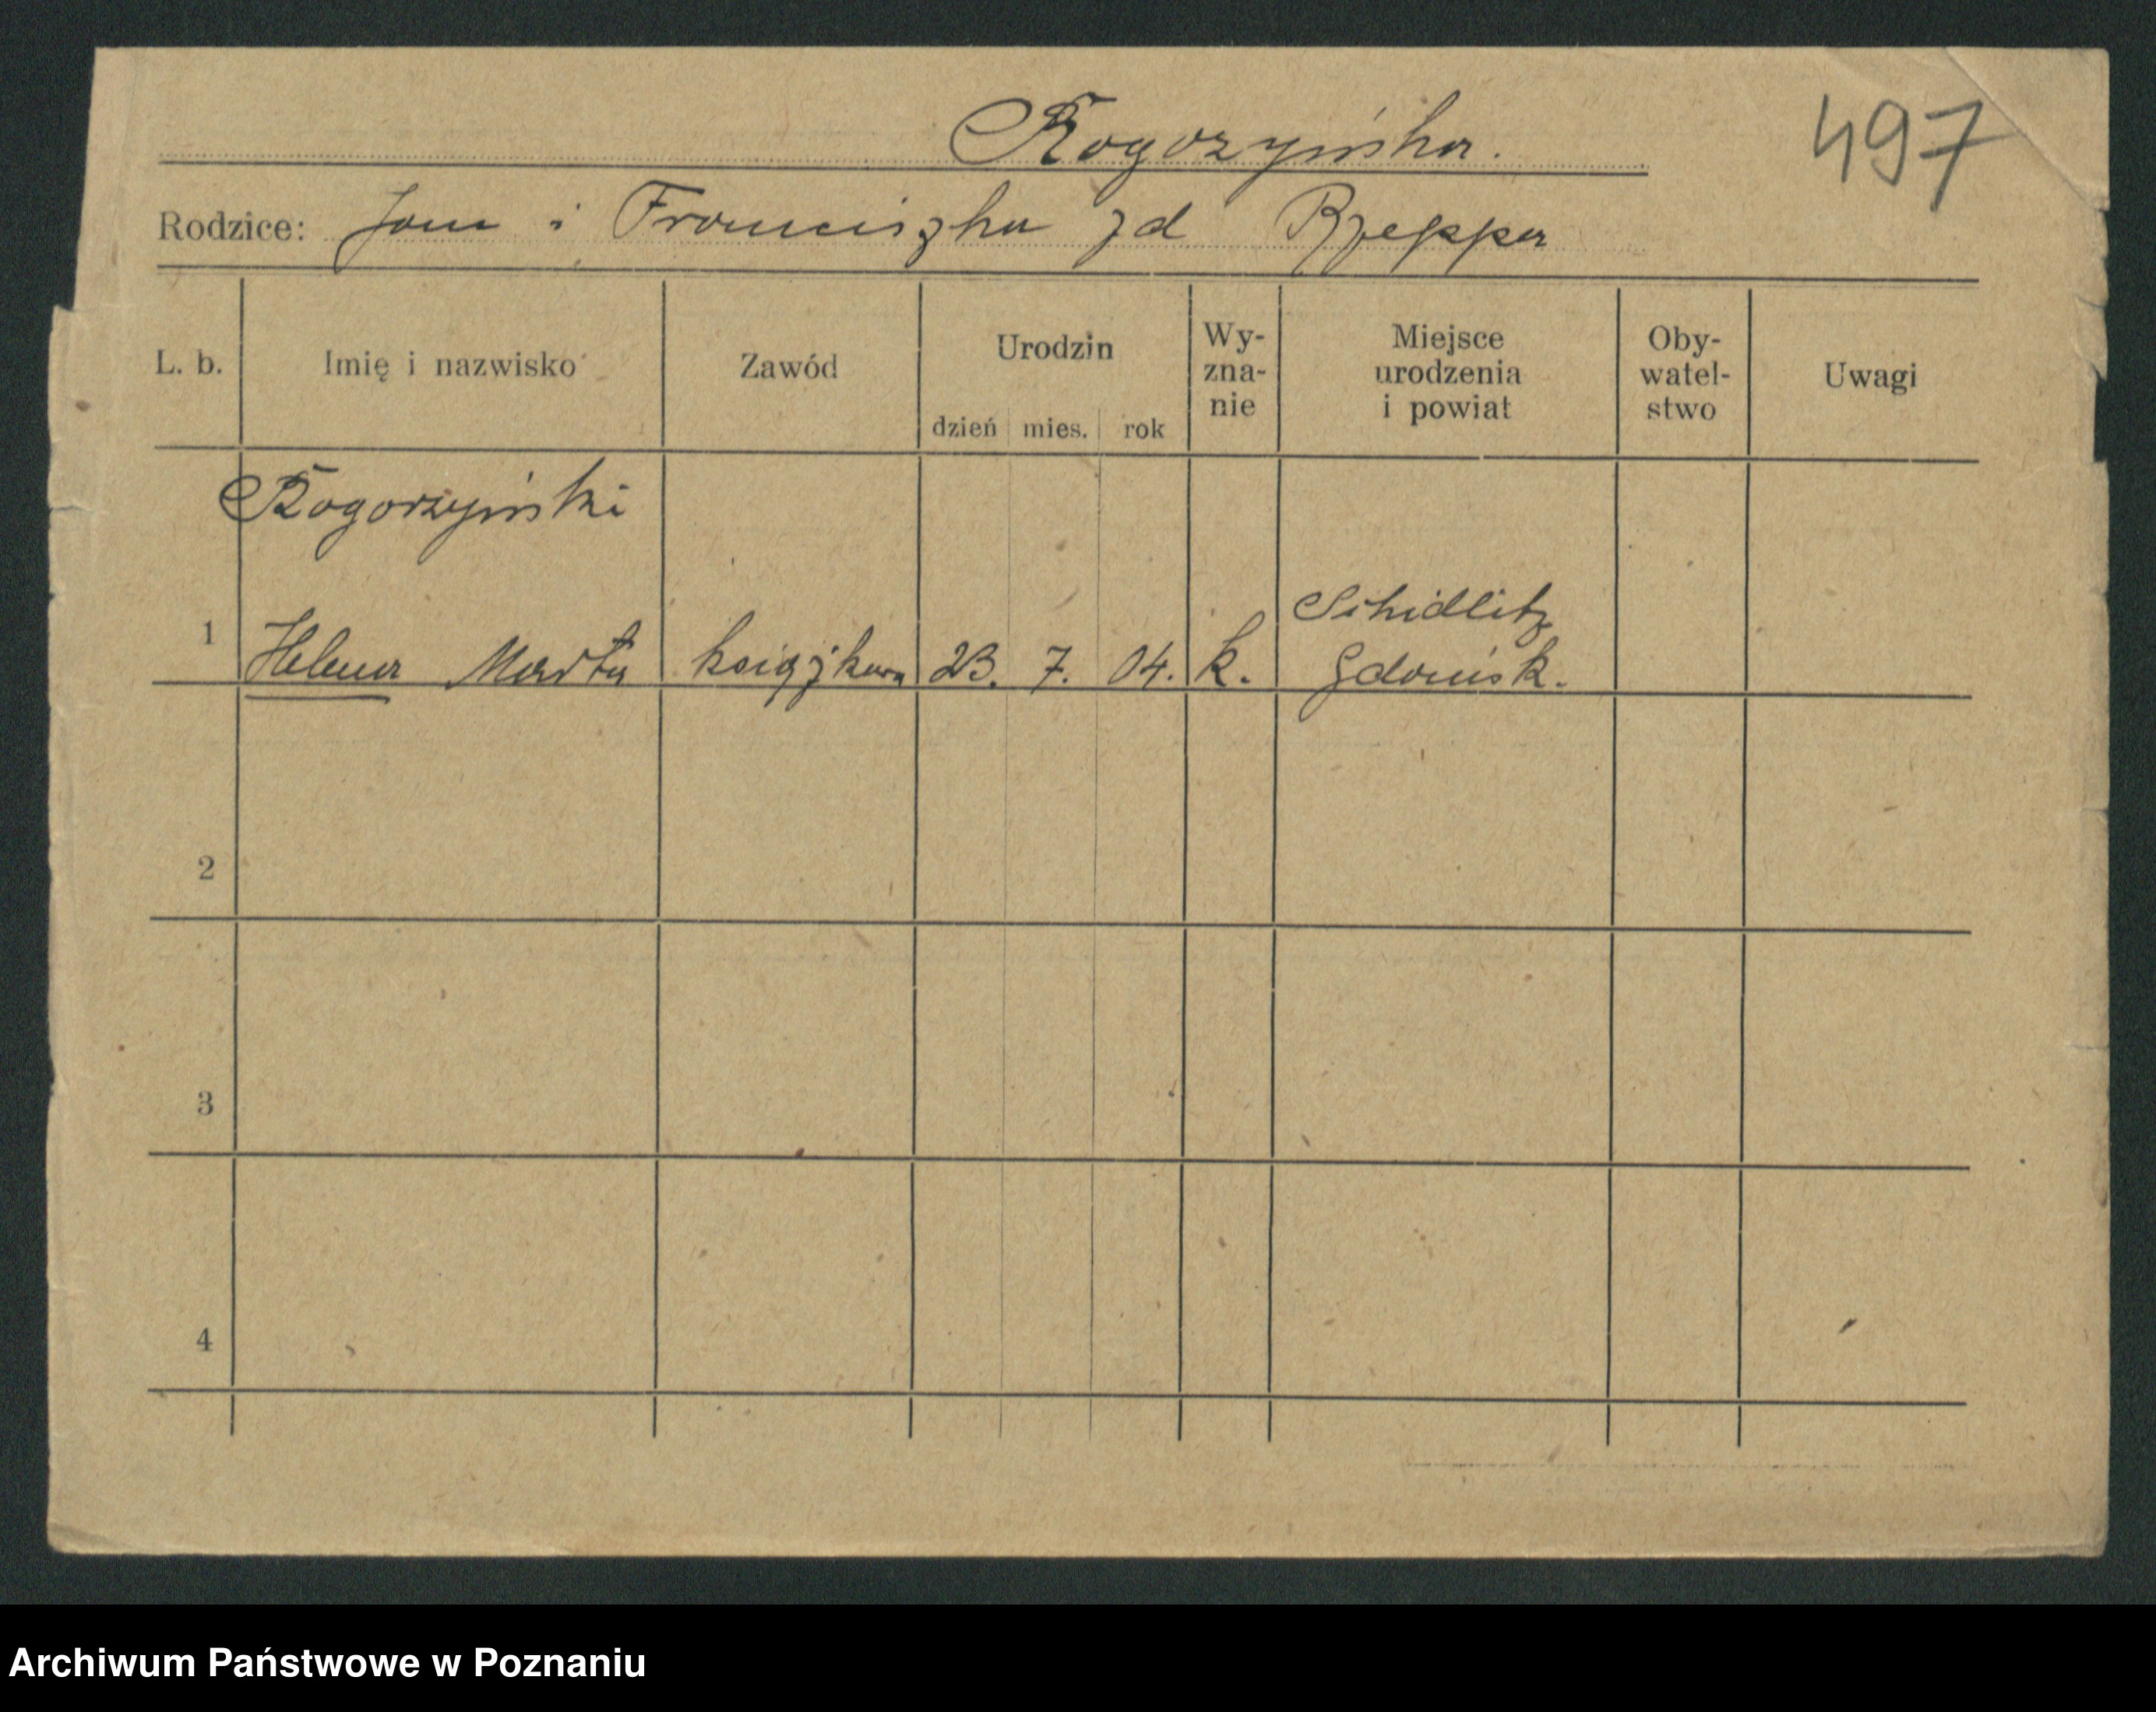 Rogozyńska.
497
Rodzice: Jan i Franciszka zd Rzeppa
L. b.
Imię i nazwisko
Zawód
Urodzin
dzień mies. rok
Wy-
zna-
nie
Miejsce
urodzenia
i powiat
Oby-
watel-
stwo
Uwagi
Rogorzyński
Schidlitz
1 Helena Marta książkowa 23. 7. 04. k. Gdańsk.
2
3
4
Archiwum Państwowe w Poznaniu